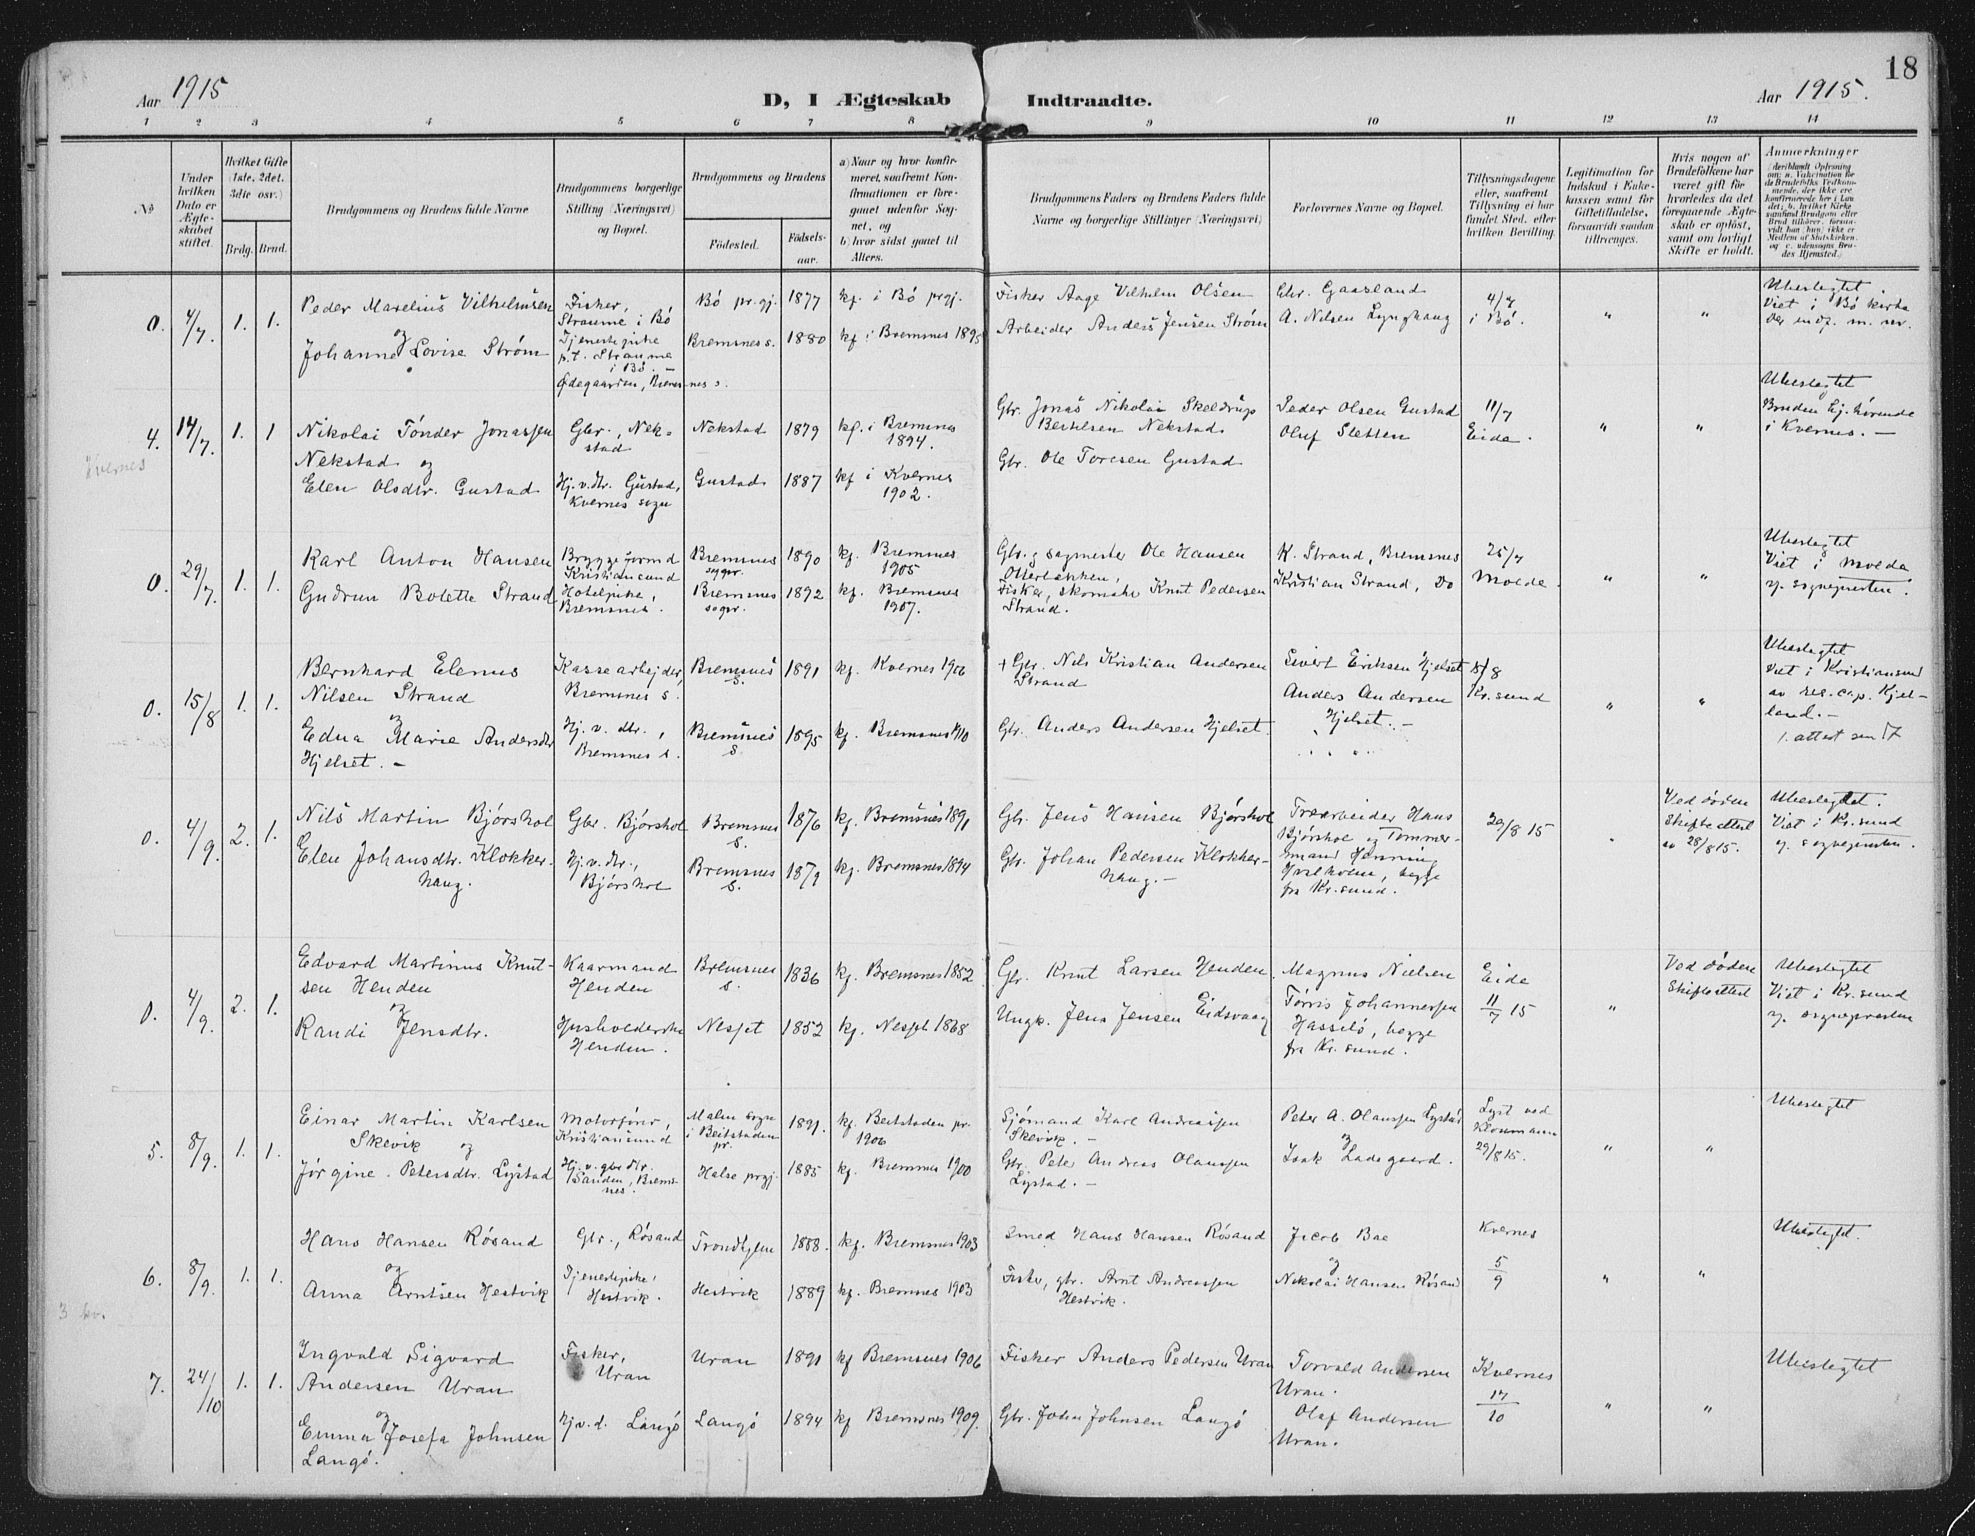 18
Aar 1915
D, I Ægteskab Indtraadte.
Aar 1915.
1 2 3 4 5 6 7 8 9 10 11 12 13 14
No
Under hvilken Dato er Ægteskabet stiftet.
Hvilket Gifte (1ste, 2det, 3die osv.)
Brdg. Brud.
Brudgommens og Brudens fulde Navne
Brudgommens borgerlige Stilling (Næringsvei) og Bopæl.
Brudgommens og Brudens
Födested.
Födselsaar.
a) Naar og hvor konfirmeret, saafremt Konfirmationen er foregaaet udenfor Sognet, og
b) hvor sidst gaaet til Alters.
Brudgommens Faders og Brudens Faders fulde Navne og borgerlige Stillinger (Næringsvei)
Forlovernes Navne og Bopæl.
Tillysningsdagene eller, saafremt Tillysning ei har fundet Sted, efter hvilken Bevilling.
Legitimation for Indskud i Enkekassen samt for Giftetilladelse, forsaavidt saadan tiltrænges.
Hvis nogen af Brudefolkene har været gift för hvorledes da det foregaaende Ægteskab er oplöst, samt om lovligt Skifte er holdt.
Anmærkninger
0. 4/7. 1. 1.
Peder Marelius Vilhelmsen
og
Johanne Lovise Strøm
Fisker,
Straume i Bö
Tjenestepike
p.t. Straume
i Bö. –
Ødegaarden, Bremsnes s.
Bö pr.gj. 1877 kf. i Bö prgj.
Bremsnes s. 1880 kf. i Bremsnes 1895
Fisker Aage Vilhelm Olsen
Arbeider Anders Jensen Strøm
Chr. Gaasland
A. Nilsen Lynghaug
4/7
i Bö.
" "
Ubeslegtet.
Viet i Bö kirke
4. 14/7. 1. 1
Kvernes
Nikolai Tønder Jonassen
Nekstad og
Elen Olsdtr. Gustad
Gbr., Nekstad
Hj.v.dtr. Gustad,
Kvernes sogn
Nekstad 1879 kf. i Bremsnes
1894.
Gustad 1887 kf i Kvernes
1902.
Gbr. Jonas Nikolai Skeldrup
Bertelsen Nekstad.
Gbr. Ole Toresen Gustad
Peder Olsen Gustad
Oluf Sletten
11/7
Eide.
" "
Ubeslegtet
Bruden hj. hørende
i Kvernes. –
0. 29/7. 1. 1.
Karl Anton Hansen
Gudrun Bolette Strand
Bryggeformd
Kristiansund
Hotelpike,
Bremsnes.
Bremsnes
sogn. 1890 kf. Bremsnes
1905
Bremsnes
sogn. 1892 kf. Bremsnes
1907.
Gbr. og sagmester Ole Hansen
Otterbekken,
Fisker, skomaker Knut Pedersen
Strand.
K. Strand, Bremsnes
Kristian Strand, Do
25/7
Molde.
" "
Ubeslegtet
Viet i Molde
af sognepresten.
0. 15/8 1. 1.
Bernhard Elenus
Nilsen Strand
og
Edna Marie Andersdtr
Hjelset. –
Kassearbejder
Bremsnes s.
Hj. v. dtr.,
Bremsnes s.
Bremsnes
s. 1891 kf. Kvernes 1906
Bremsnes
s. 1895 kf. Bremsnes 1910
+ Gbr. Nils Kristian Andersen
Strand
Gbr. Anders Andersen Hjelset.
Sivert Eriksen Hjelset
Anders Andersen
Hjelset. –
8/8
Kr.sund
" "
Ubeslegtet
Viet i Kristiansund
av res. cap. Kjelland. –
0. 4/9. 2. 1.
Nils Martin Bjørshol
Elen Johansdtr. Klokkerhaug.
Gbr. Bjørshol
Hj.v.dtr.,
Bjørshol
Bremsnes
s. 1876 kf. Bremsnes 1891
Bremsnes
s. 1879 kf. Bremsnes 1894
Gbr. Jens Hansen Bjørshol
Gbr. Johan Pedersen Klokkerhaug. –
Træarbeider Hans
Bjørshol og Tømmermand Henning
Hvilholm, begge
fra Kr.sund.
29/8 15
"
Ved døden
Skifteattest
av 28/8 15.
Ubeslegtet.
Viet i Kr.sund
af sognepresten.
0. 4/9. 2. 1.
Edvard Martinus Knutsen Henden
og
Randi Jensdtr.
Kaarmand
Henden
Husholderske
Henden.
Bremsnes
s. 1836 kf. Bremsnes 1852
Nesset 1852 kf. Nesset 1868
Gbr. Knut Larsen Henden
Ungk. Jens Jensen Eidsvaag
Magnus Nielsen
Tørris Johannessen
Hasselö, begge
fra Kr.sund.
Eide
11/7 15
"
Ved døden
Skifteattest
Ubeslegtet
Viet i Kr.sund
af sognepresten
5. 8/9. 1. 1.
Einar Martin Karlsen
Skevik og
Jørgine Petersdtr. Lystad
Motorfører,
Kristiansund
Hj.v. gbr. dtr.
Sanden, Bremsnes.
Malm sogn
i Beitstaden
pr. 1891. kf. Beitstaden pr.
1906
Halse prgj. 1885 kf. Bremsnes 1900
Sjømand Karl Andreassen
Skevik. –
Gbr. Peter Andreas Olaussen
Lystad. –
Peter A. Olaussen Lystad
og
Isak Ladegaard.
Lyst ved
Klokmann
29/8 15.
" "
Ubeslegtet
6. 8/9. 1. 1.
3 kv.
Hans Hansen Røsand
og
Anna Arntsen Hestvik
Gbr., Røsand
Tjenestepike,
Hestvik.
Trondhjem 1888. kf. Bremsnes 1903
Hestvik 1889 kf. Bremsnes 1903
Smed Hans Hansen Røsand
Fisker, gbr. Arnt Andreassen
Hestvik.
Jacob Bae
og
Nikolai Hansen Røsand
Kvernes
5/9
" "
Ubeslegtet.
7. 24/10 1. 1.
Ingvald Sigvard
Andersen Uran
og
Emma Josefa Johnsen
Langö.
Fisker,
Uran
Hj.v.d. Langö
Uran 1891 kf Bremsnes 1906
Langö 1894 kf Bremsnes 1909.
Fisker Anders Pedersen Uran
Gbr. John Johnsen Langö
Torvald Andersen
Uran.
Olaf Andersen
Uran.
Kvernes
17/10
" "
Ubeslegtet